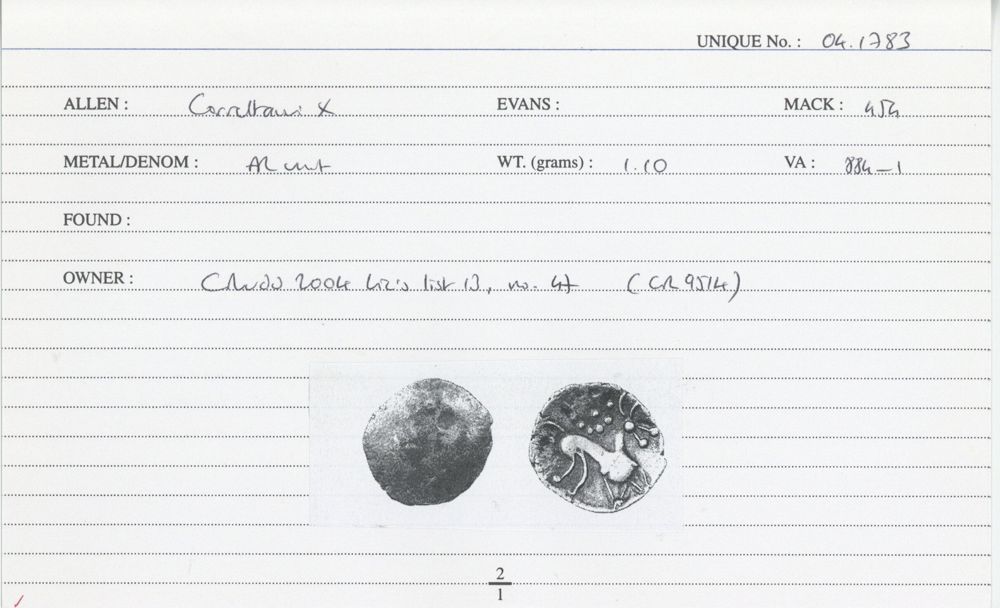 UNIQUE No. : 04.1783
ALLEN : Corieltauvi X EVANS : MACK : 454
METAL/DENOM : AR unit WT. (grams) : 1.10 VA : 884-1
FOUND :
OWNER : 2004 Liz's list 13, no. 47 (CR 9514)
2
1